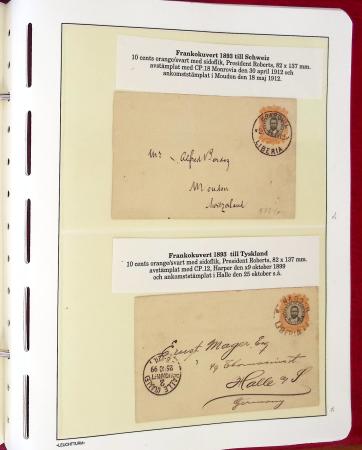 Frankokuvert 1893 till Schweiz
10 cents orange/svart med sidoflik, President Roberts, 82 x 137 mm.
avstämplat med CP.18 Monrovia den 30 april 1912 och
ankomststämplat i Moudon den 18 maj 1912.
MONROVIA
LIBERIA
Mr Alfred
Moudon
Switzerland
Frankokuvert 1893 till Tyskland
10 cents orange/svart med sidoflik, President Roberts, 82 x 137 mm.
avstämplat med CP.12, Harper den x9 oktober 1899
och ankomststämplat i Halle den 25 oktober s.å.
HARPER
LIBERIA
Ernst Mager Esq
Halle a/S
Germany
HALLE
25 10 99
LEUCHTTURM